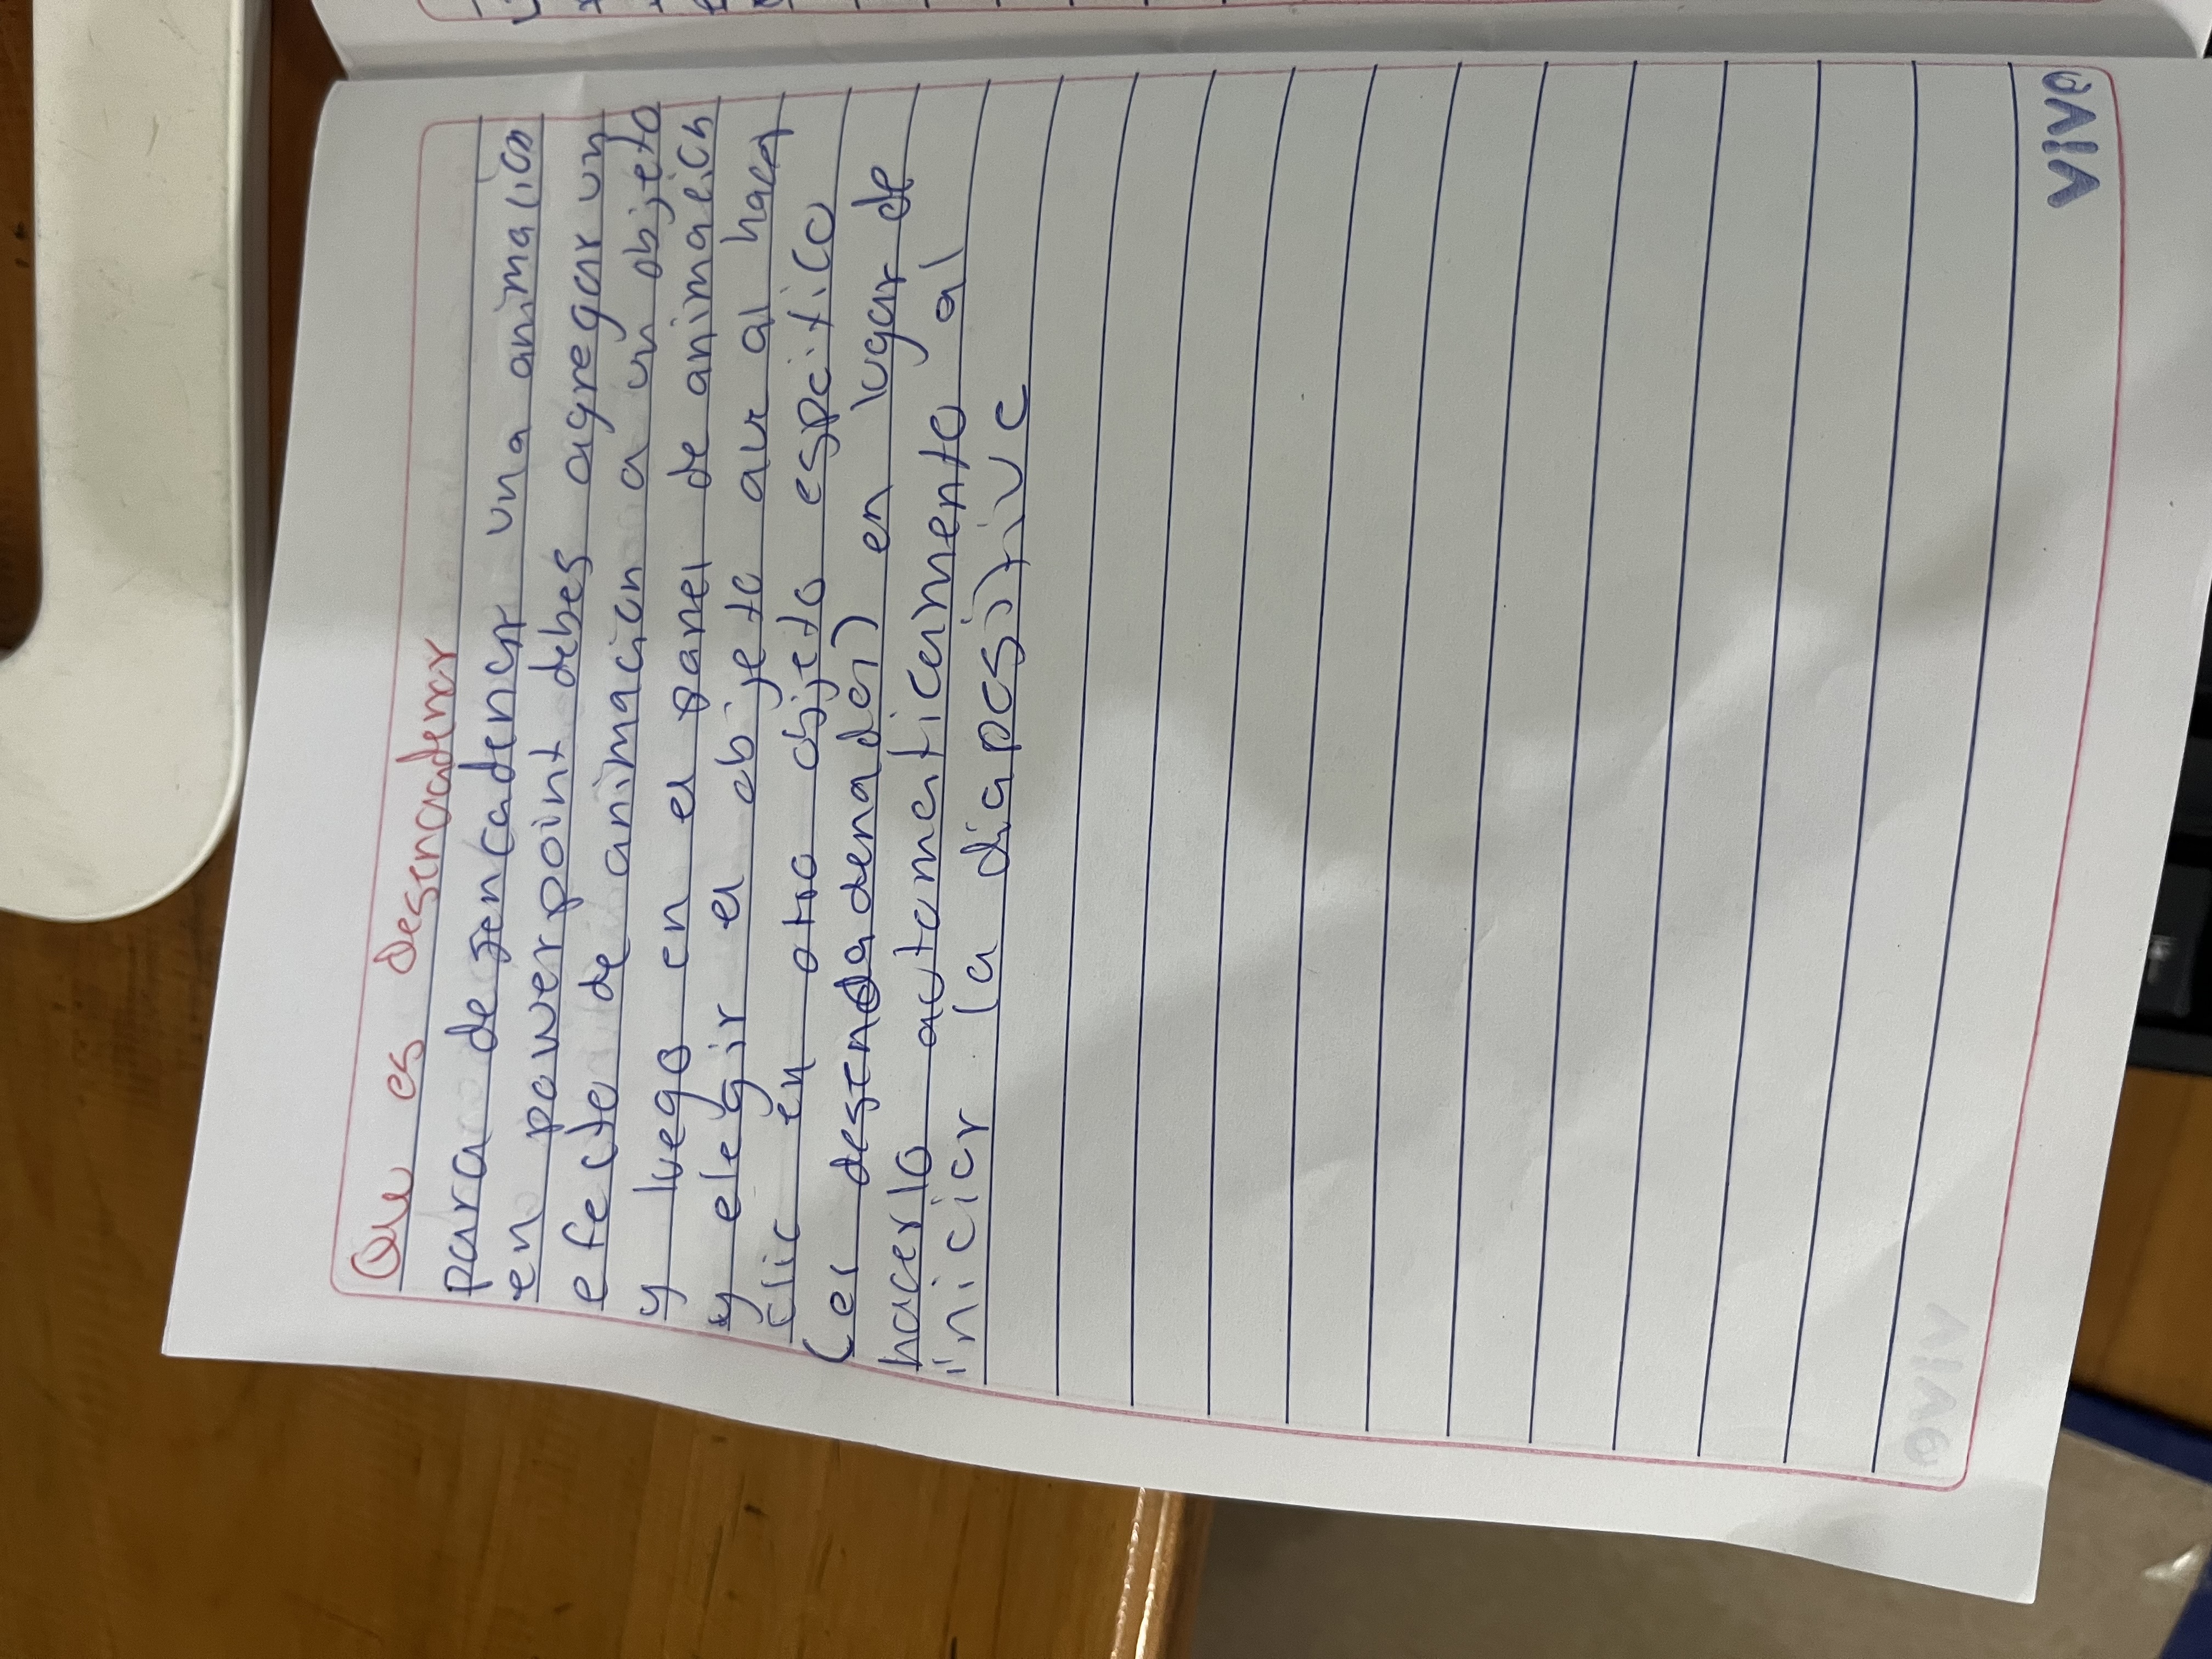 Que es desencadenar
para desencadenar una animalion
en powerpoint debes agregar un
efecto de animacion a un objeto
y luego en el panel de animacion
y elegir el objeto aur al hacer
clic en otro objeto espcifico
(el desenadenador) en lugar de
hacerlo automaticamento al
iniciar la diapositiva
VIVA